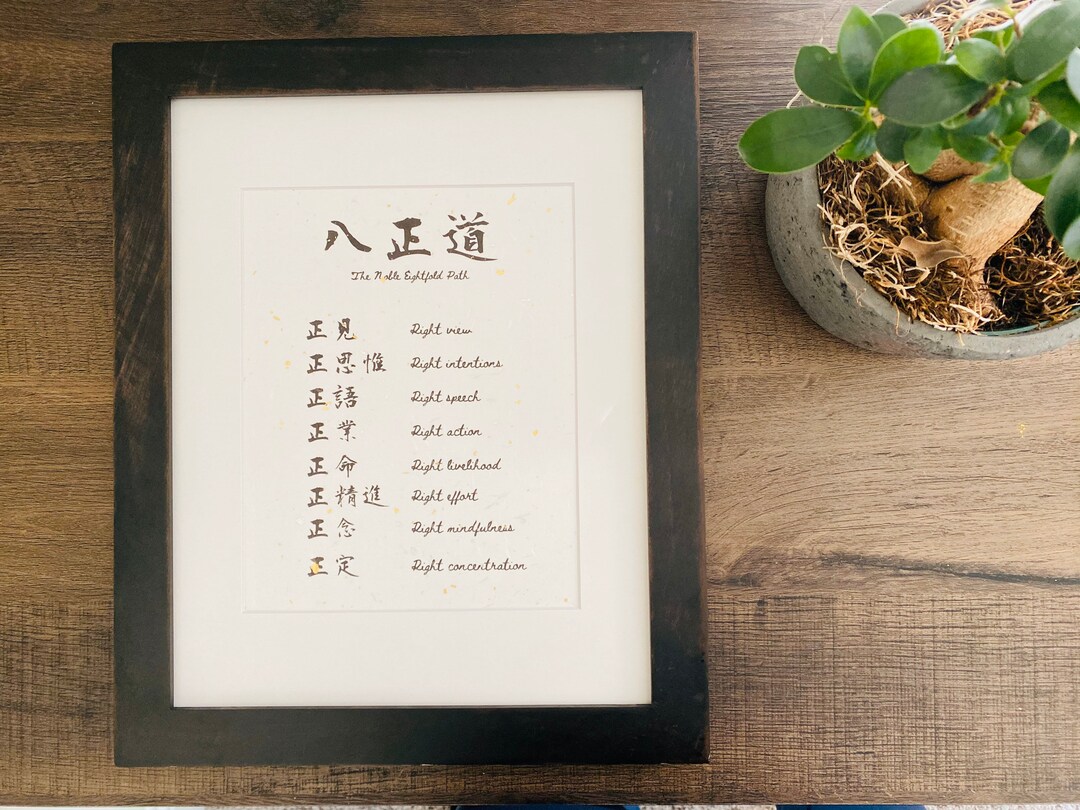 八正道
The Noble Eightfold Path
正見 Right view
正思惟 Right intentions
正語 Right speech
正業 Right action
正命 Right livelihood
正精進 Right effort
正念 Right mindfulness
正定 Right concentration